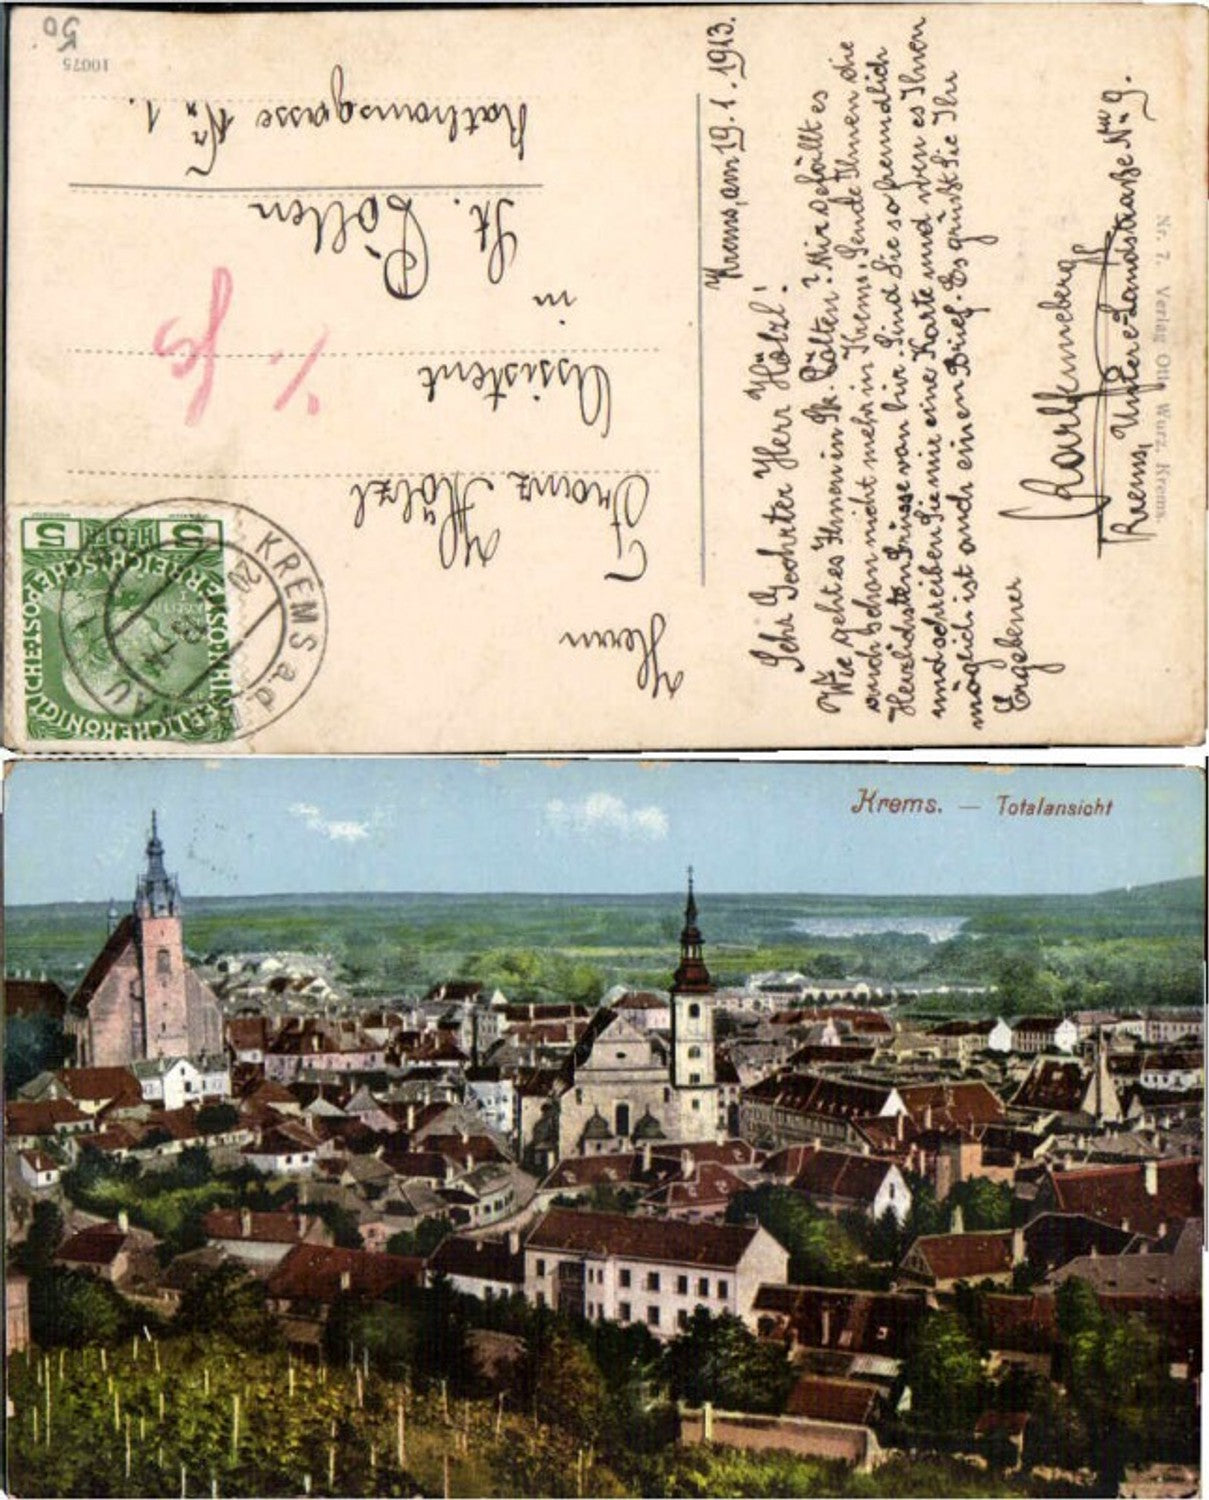 Krems, am 19. 1. 1913.
Sehr Geehrter Herr Hölzl!
Wie geht es Ihnen in St. Pölten? Mir gefällt es
auch schon nicht mehr in Krems. Sende Ihnen die
Herzlichsten Grüsse von hir. Sind Sie so freundlich
und schreiben Sie mir eine Karte und wen es Ihnen
möglich ist auch einen Brief. Es grüsst Sie Ihr
Ergebener
Krems, Untere Landstraße No 9.
Nr. 7. Verlag Otto Wurz, Krems.
Herrn
Franz Hölzl
Assistent
in
St. Pölten
Kathansgasse Nr 1.
10075
50
5 HELLER 5
KREMS a.d.
20
13
Krems. — Totalansicht